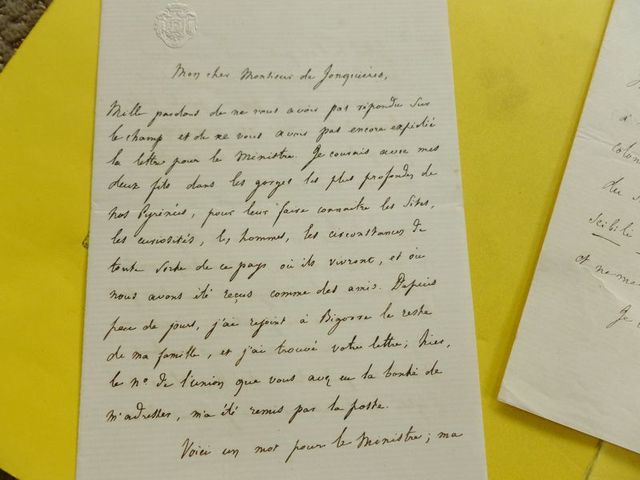 Mon cher Monsieur de Jonquières,
Mille pardons de ne vous avoir pas répondu sur
le champ et de ne vous avoir pas encore expédié
la lettre pour le Ministre. Je courais avec mes
deux fils dans les gorges les plus profondes de
nos Pyrénées, pour leur faire connaître les sites,
les curiosités, les hommes, les circonstances de
toute sorte de ce pays où ils vivront, et où
nous avons été reçus comme des amis. Depuis
peu de jours, j'ai rejoint à Bigorre le reste
de ma famille, et j'ai trouvé votre lettre; hier,
le no de l'union que vous avez eu la bonté de
m'adresser, m'a été remis par la poste.
Voici un mot pour le Ministre; ma
colon
du
et ne me
Je